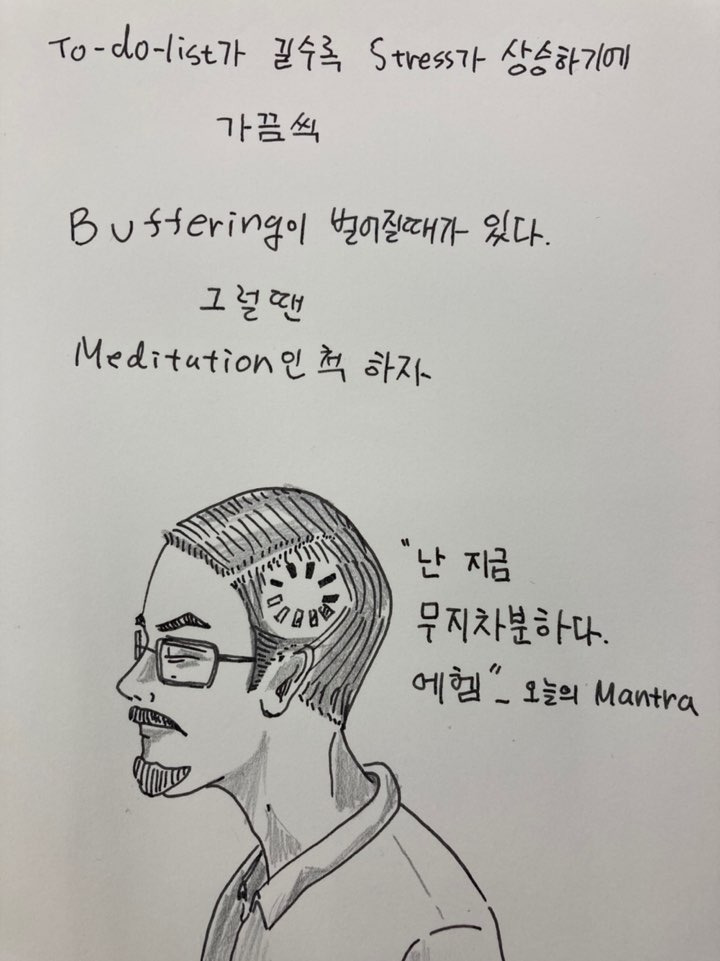 To-do-list가 길수록 Stress가 상승하기에
가끔씩
Buffering이 벌어질때가 있다.
그럴땐
Meditation인 척 하자
"난 지금
무지차분하다.
에헴"_ 오늘의 Mantra